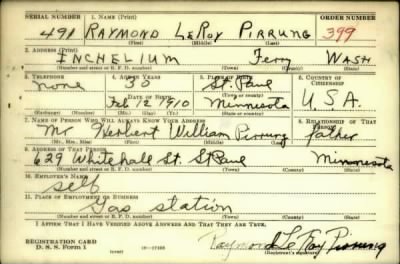 SERIAL NUMBER 1. NAME (Print) ORDER NUMBER
491 RAYMOND LeROY PIRRUNG 399
(First) (Middle) (Last)
2. ADDRESS (Print)
INCHELIUM Ferry WASH
(Number and street or R. F. D. number) (Town) (County) (State)
3. TELEPHONE 4. AGE IN YEARS 5. PLACE OF BIRTH 6. COUNTRY OF CITIZENSHIP
none 30 St. Paul
DATE OF BIRTH (Town or county)
Feb 12 1910 Minnesota U.S.A.
(Exchange) (Number) (Mo.) (Day) (Yr.) (State or country)
7. NAME OF PERSON WHO WILL ALWAYS KNOW YOUR ADDRESS 8. RELATIONSHIP OF THAT PERSON
Mr. Herbert William Pirrung father
(Mr., Mrs., Miss) (First) (Middle) (Last)
9. ADDRESS OF THAT PERSON
629 Whitehall St. St Paul Minnesota
(Number and street or R. F. D. number) (Town) (County) (State)
10. EMPLOYER'S NAME
self
11. PLACE OF EMPLOYMENT OR BUSINESS
Gas station
(Number and street or R. F. D. number) (Town) (County) (State)
I AFFIRM THAT I HAVE VERIFIED ABOVE ANSWERS AND THAT THEY ARE TRUE.
REGISTRATION CARD
D. S. S. Form 1 Raymond Le Roy Pirrung
(Registrant's signature)